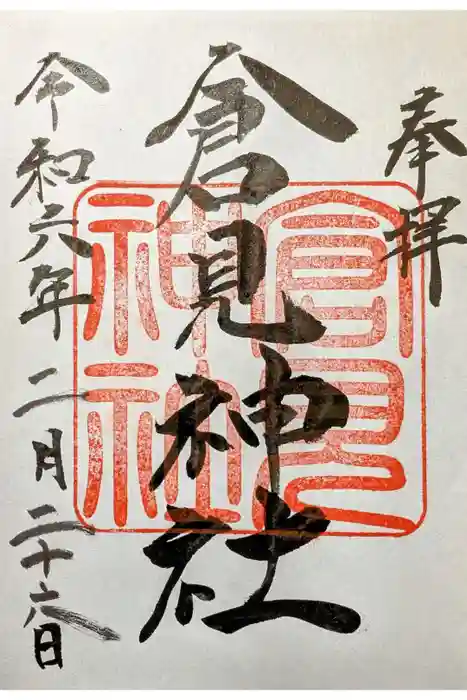 奉拝
倉見神社
倉見
神社
令和六年二月二十六日